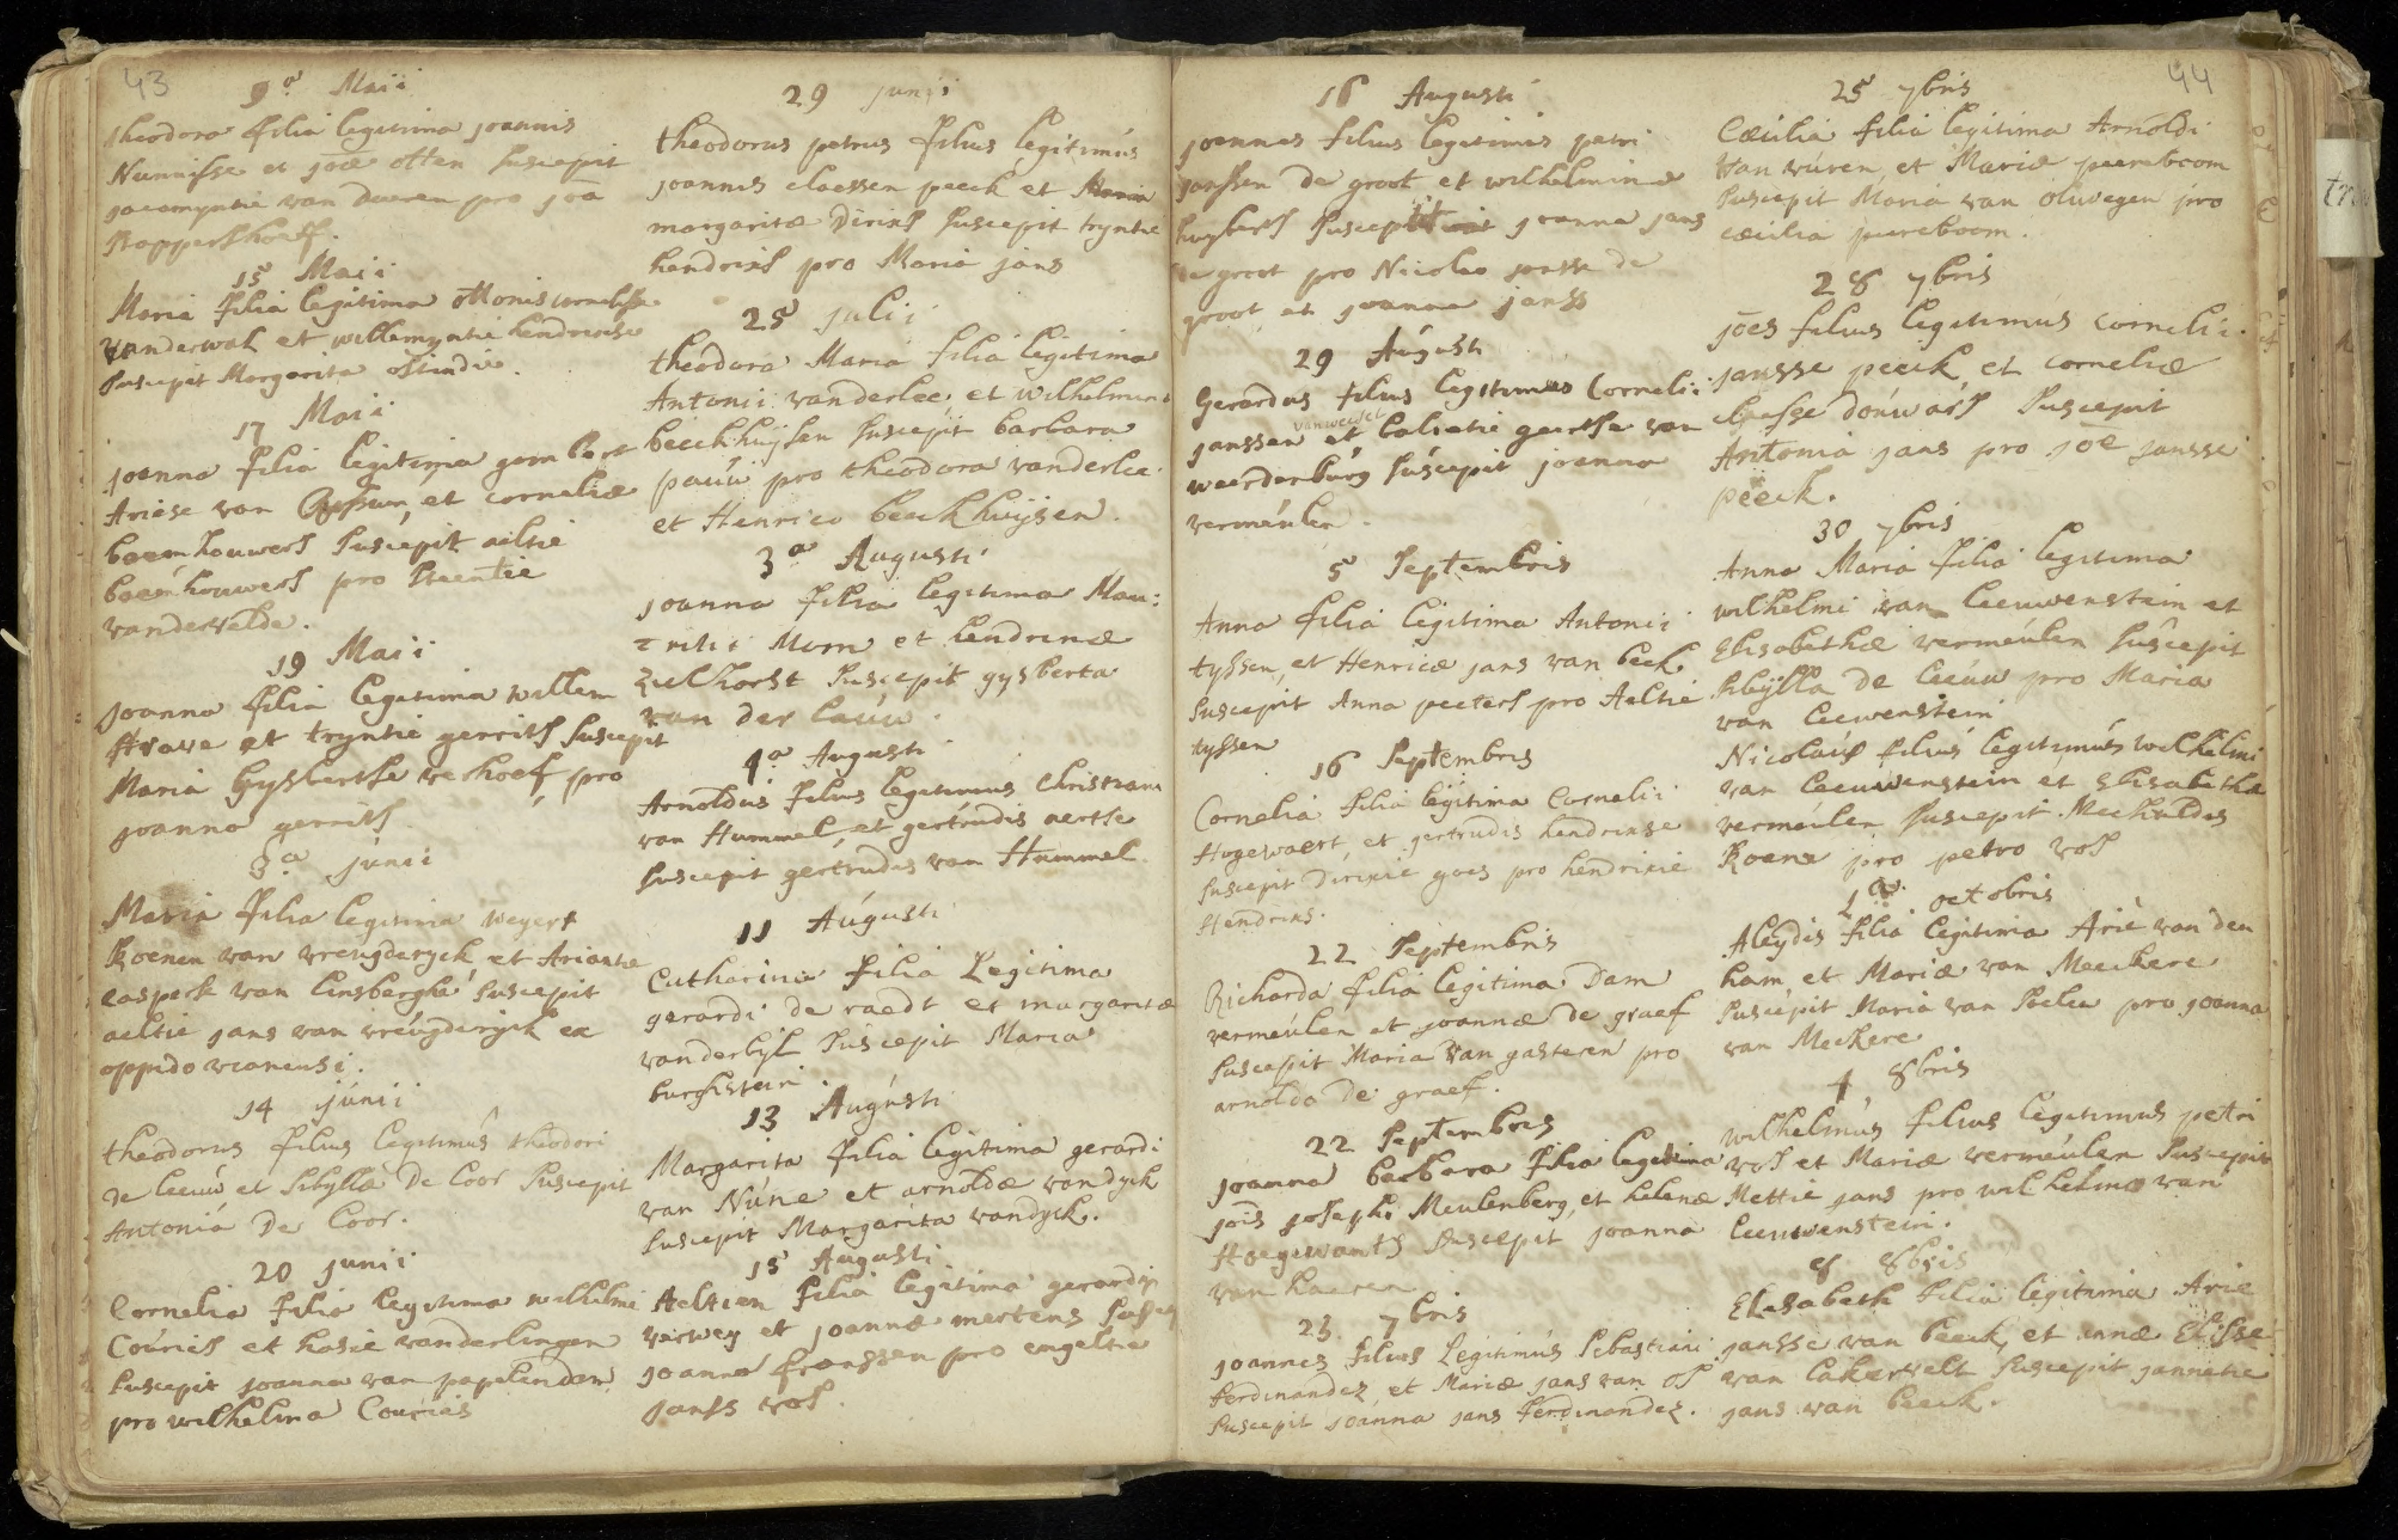 43
9a Maii
theodora filia legitima joannis
Nunnisse et joae otten suscepit
jacomyntie van dueren pro joa
stoppershoef.
15 Maii
Maria filia legitima ottonis cornelisse
vanderwal et willemyntie hendrickse
suscepit Margarita ostindie.
17 Maii
joanna filia legitima gombert
Ariese van et corneliæ
boemhouwers suscepit aeltie
boemhouwers pro steentie
vandervelde.
19 Maii
joanna filia legitima willem
et tryntie gerrits suscepit
Maria Gysbertse verhoef, pro
joanna gerrits
3a junii
Maria filia legitima weyert
koenen van vreugderyck et Ariantie
caspers van linsberghe suscepit
aeltie jans van vreugderyck ex
oppido vianensi.
14 junii
theodorus filius legitimus theodori
de leeuw et sibylla de Coor suscepit
Antonia De Coor.
20 junii
Cornelia filia legitima wilhelmi
Couries et hasie vanderlingen
suscepit joanna van papelendam
pro wilhelma Couries
29 junii
theodorus petrus filius legitimus
joannis claessen peeck et
margaritæ Dirixs suscepit tryntie
hendrixs pro Maria jans
25 julii
theodora Maria filia legitima
Antonii vanderlee et wilhelmina
beeckhuijsen suscepit barbara
pauw pro theodora vanderlee
et Henrico beeckhuijsen.
3a Augusti
joanna filia legitima Mau:
ritii Mom et hendrinæ
zuelhorst suscepit gysberta
van der lauw.
4a Augusti
Arnoldus filius legitimus Christiani
van Hummel, et gertrudis aertse
suscepit gertrudis van Hummel.
11 Augusti
Catharina filia Legitima
gerardi de raedt et margaritæ
vanderbyl suscepit Maria
burghstein.
13 Augusti
Margarita filia legitima gerardi
van Nune et arnoldæ vandyck
suscepit Margarita vandyck.
15 Augusti
Aeltien filia legitima gerardi
verwey et joannæ mertens
joanna franssen pro engeltie
janss vos.
44
16 Augusti
joannes filius legitimus petri
janssen de groot et wilhelminæ
huyberts suscepit joanna jans
de groot pro Nicolao jansse de
groot et joanna janss
29 Augusti
Gerardus filius legitimus Cornelii
vanweset
janssen et baliatie geertse van
weerdenburg suscepit joanna
vermeulen.
5 Septembris
Anna filia legitima Antonii
tyssen, et Henricæ jans van beek
suscepit Anna peeters pro Aeltie
tyssen
16 Septembris
Cornelia filia legitima Cornelii
Hogewaert, et gertrudis hendrixse
suscepit Dirixie goes pro hendrixie
Hendrixs.
22 Septembris
Richarda filia legitima Dam
vermeulen et joannæ de graef
suscepit Maria van gasteren pro
arnoldo de graef.
22 Septembris
joanna barbara filia legitima
jois josephi Meulenberg, et helenæ
Hoegewants suscepit joanna
van haeren
23 7bris
joannes filius Legitimus sebastiani
ferdinandez et Mariæ jans van os
suscepit joanna jans ferdinandez.
25 7bris
Cæcilia filia legitima Arnoldi
van wuren, et Mariæ peereboom
suscepit Maria van oluvegen pro
cæcilia peereboom.
28 7bris
joes filius legitimus cornelii
jansse peeck, et corneliæ
claesse douwars suscepit
Antonia jans pro joe jansse
peeck.
30 7bris
Anna Maria filia legitima
wilhelmi van leeuwenstein et
Elisabethæ vermeulen suscepit
sibylla de leeuw pro Maria
van leewenstein
Nicolaus filius legitimus wilhelmi
van leeuwenstein et Elisabethæ
vermeulen suscepit Mechtildis
koene pro petro vos
1a octobris
Aleydis filia legitima Arie van den
ham et Mariæ van Meeckere
suscepit Maria van soelen pro joanna
van Meckere
4 8bris
wilhelmus filius legitimus petri
vos et Mariæ vermeulen suscepit
Mettie jans pro wilhelmo van
leeuwenstein.
8 8bris
Elisabeth filia legitima Arie
jansse van beeck, et annæ Elisse
van lakervelt suscepit jannetie
jans van beeck.